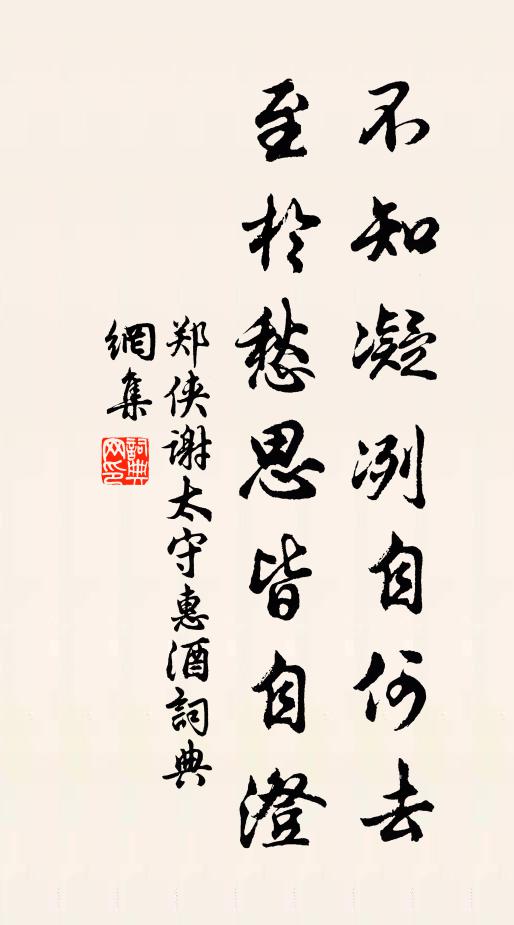 不知凝冽自何去
至於愁思皆自澄
郑侠谢太守惠酒詞典
網集
詞典
网印